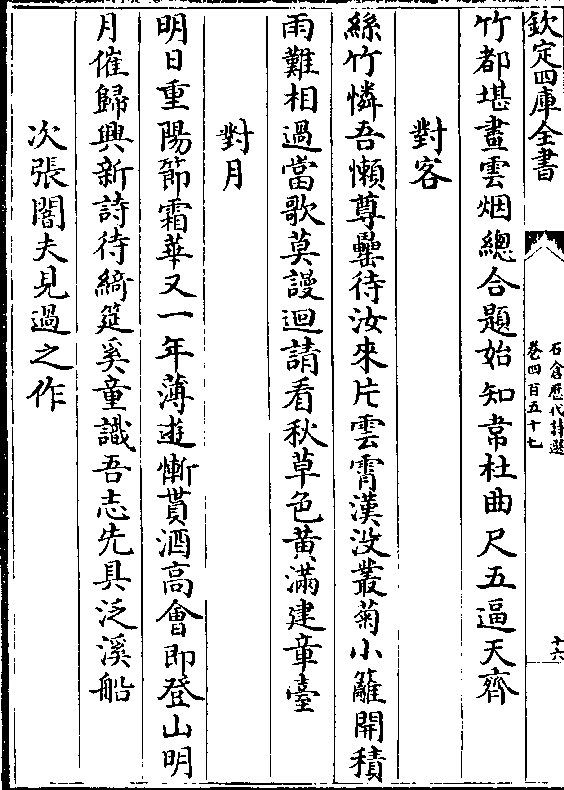 欽定四庫全書
石倉歷代詩選
卷四百五十七
十六
竹都堪畫雲烟總合題始知韋杜曲尺五逼天齊
對客
絲竹憐吾懶尊罍待汝來片雲霄漢没叢菊小籬開積
雨難相過當歌莫謾迴請看秋草色黄滿建章臺
對月
明日重陽節霜華又一年薄遊慚貰酒高會即登山明
月催歸興新詩待綺筵奚童識吾志先具泛溪船
次張闇夫見過之作